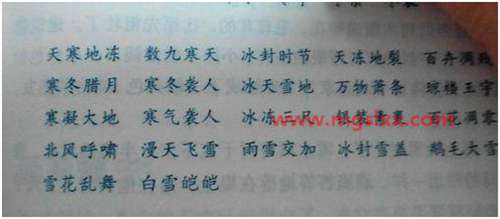 天寒地冻 数九寒天 冰封时节 天冻地裂 百卉凋残
寒冬腊月 寒冬袭人 冰天雪地 万物萧条 琼楼玉宇
寒凝大地 寒气袭人 冰冻三尺 银装素裹 百花凋零
www.mgsfxx.com
北风呼啸 漫天飞雪 雨雪交加 冰封雪盖 鹅毛大雪
雪花乱舞 白雪皑皑